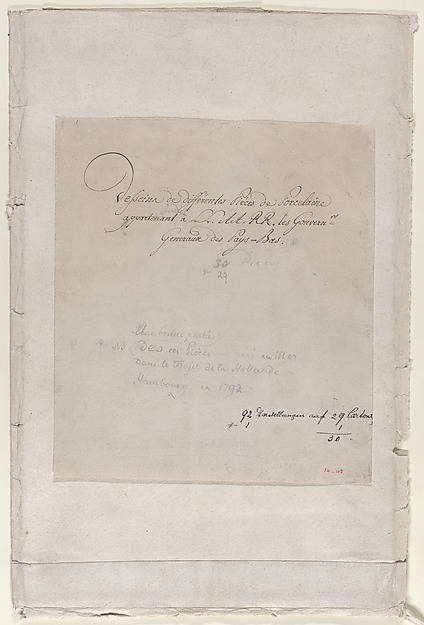 Desseins de différentes Pièces de Porcelaine
appartenant à LL. AA. RR. les Gouvern.rs
Generaux des Pays-Bas.
30
29
Une bonne partie
NB Des ces Pièces en Mer
Dans le Trajet de la Hollande
Hambourg en 1792.
92 Darstellungen auf 29 Cartons
+ 1 1
30